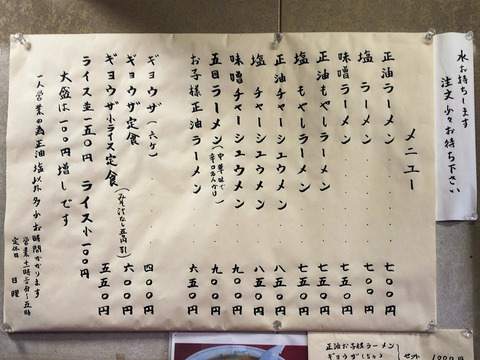 水お持ちします
注文少々お待ち下さい
メニュー
正油ラーメン 七〇〇円
塩ラーメン 七〇〇円
味噌ラーメン 七五〇円
正油もやしラーメン 七五〇円
塩もやしラーメン 七五〇円
正油チャーシュウメン 八五〇円
塩チャーシュウメン 八五〇円
味噌チャーシュウメン 九〇〇円
五目ラーメン(中華味で辛口あんかけ) 九〇〇円
お子様正油ラーメン 六五〇円
ギョウザ(六ケ) 四〇〇円
ギョウザ定食 六〇〇円
ギョウザ小ライス定食 五五〇円
ライス並一五〇円 ライス小一〇〇円
大盛は一〇〇円増しです
一人営業の為正油塩以外多少お時間かかります
定休日 日曜
正油お子様ラーメン
ギョウザ
セット 1000円